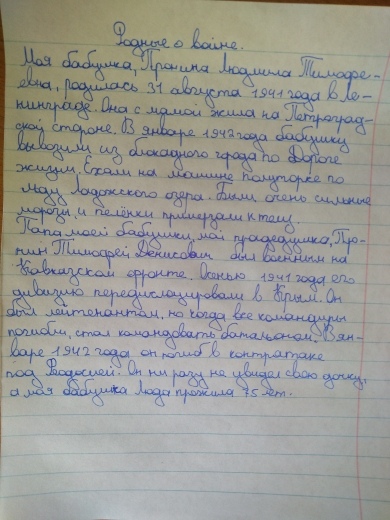 Родные о войне.
Моя бабушка, Пронина Людмила Тимофе-
евна, родилась 31 августа 1941 года в Ле-
нинграде. Она с мамой жила на Петроград-
ской стороне. В январе 1942 года бабушку
вывозили из блокадного города по Дороге
жизни. Ехали на машине полуторке по
льду Ладожского озера. Были очень сильные
морозы, и пелёнки примерзали к телу.
Папа моей бабушки, мой прадедушка, Про-
нин Тимофей Денисович был военным на
Кавказском фронте. Осенью 1941 года его
дивизию передислоцировали в Крым. Он
был лейтенантом, но когда все командиры
погибли, стал командовать батальоном. В ян-
варе 1942 года он погиб в контратаке
под Феодосией. Он ни разу не увидел свою дочку,
а моя бабушка Люда прожила 75 лет.